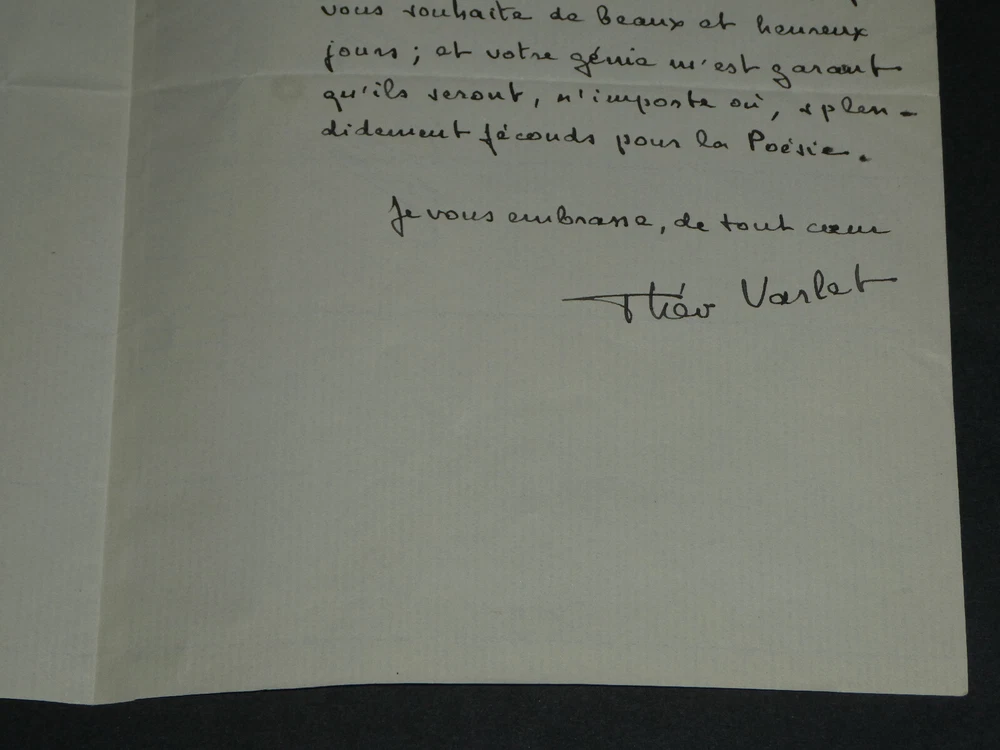 vous souhaite de beaux et heureux
jours ; et votre génie m'est garant
qu'ils seront, n'importe où, splen-
didement féconds pour la Poésie.
Je vous embrasse, de tout cœur
Théo Varlet